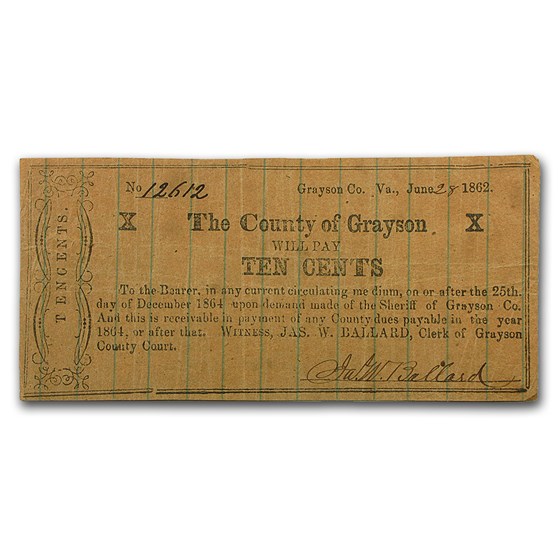 TEN CENTS.
No 12612 Grayson Co. Va., June 28 1862.
X The County of Grayson X
WILL PAY
TEN CENTS
To the Bearer, in any current circulating me dium, on or after the 25th.
day of December 1864 upon demand made of the Sheriff of Grayson Co.
And this is receivable in payment of any County dues payable in the year
1864, or after that. WITNESS, JAS. W. BALLARD, Clerk of Grayson
County Court.
Jas W. Ballard